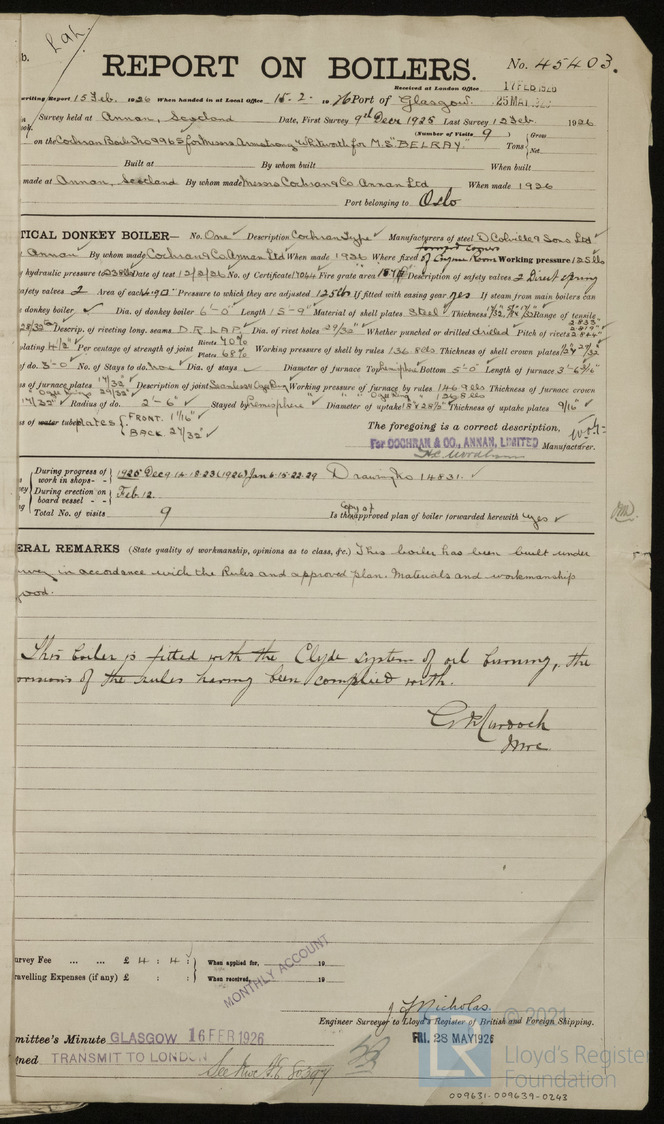 Rpt.
b.
REPORT ON BOILERS.
No. 45403.
Received at London Office 17 FEB 1926
25 MAY 1926
writing Report 15 Feb. 1926 When handed in at Local Office 15.2.1926 Port of Glasgow.
Survey held at Annan, Scotland Date, First Survey 9th Decr 1925 Last Survey 12 Feb. 1926
(Number of Visits 9) Gross
Tons Net
on the Cochran Boiler No 9965 for Messrs Armstrong Whitworth for M.S. "BELRAY."
Built at By whom built When built
made at Annan, Scotland By whom made Messrs Cochran & Co Annan Ltd When made 1926
Port belonging to Oslo
TICAL DONKEY BOILER— No. One Description Cochran Type Manufacturers of steel D Colville & Sons Ltd
Annan By whom made Cochran & Co Annan Ltd When made 1926 Where fixed Engine Room Working pressure 125 lb
hydraulic pressure to 238 lb Date of test 12/2/26 No. of Certificate 17044 Fire grate area Description of safety valves 2 Direct spring
safety valves 2 Area of each 4.90 Pressure to which they are adjusted 125 lb If fitted with easing gear yes If steam from main boilers can
donkey boiler Dia. of donkey boiler 6'-0" Length 15'-9" Material of shell plates Steel Thickness Range of tensile
28/32 Descrip. of riveting long. seams D.R. LAP. Dia. of rivet holes 29/32" Whether punched or drilled drilled Pitch of rivets
plating 4 1/2" Per centage of strength of joint Rivets 70% Plates 68% Working pressure of shell by rules 136.8 lbs Thickness of shell crown plates 27/32"
of do. 3'-0" No. of Stays to do. None Dia. of stays Diameter of furnace Top Hemisphere Bottom 5'-0" Length of furnace
s of furnace plates 17/32" Description of joint Seamless Ogee Ring Working pressure of furnace by rules 146.9 lbs Thickness of furnace crown
17/32" Radius of do. 2'-6" Stayed by Hemisphere Diameter of uptake Thickness of uptake plates 9/16"
s of water tubes plates { FRONT. 1 1/16"
BACK 27/32"
The foregoing is a correct description,
For COCHRAN & CO., ANNAN, LIMITED Manufacturer.
During progress of work in shops - - 1925 Dec 9.14.18.23 (1926) Jan 6.15.22.29 Drawing No 14831.
During erection on board vessel - - Feb. 12.
Total No. of visits 9 Is the Copy of approved plan of boiler forwarded herewith yes
ERAL REMARKS (State quality of workmanship, opinions as to class, &c.) This boiler has been built under
survey in accordance with the Rules and approved plan. Materials and workmanship
good.
This boiler is fitted with the Clyde system of oil burning, the
provisions of the rules having been complied with.
G. Murdoch
urvey Fee ... ... £ 4 : 4 : When applied for, 19
ravelling Expenses (if any) £ : : When received, 19
MONTHLY ACCOUNT
J Nicholas.
Engineer Surveyor to Lloyd's Register of British and Foreign Shipping.
mmittee's Minute GLASGOW 16 FEB 1926
FRI. 28 MAY 1926
gned TRANSMIT TO LONDON
© 2021
LR
Lloyd's Register
Foundation
009631-009639-0243